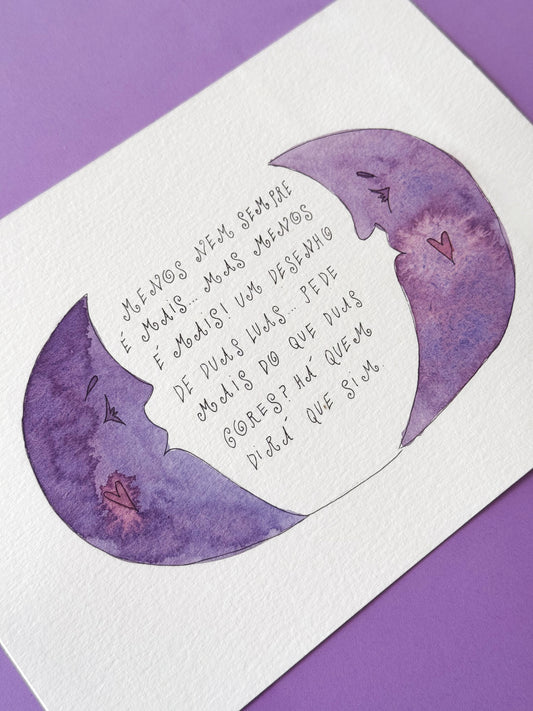 MENOS NEM SEMPRE
É MAIS... MAS MENOS
É MAIS! UM DESENHO
DE DUAS LUAS... PEDE
MAIS DO QUE DUAS
CORES? HÁ QUEM
DIRÁ QUE SIM.